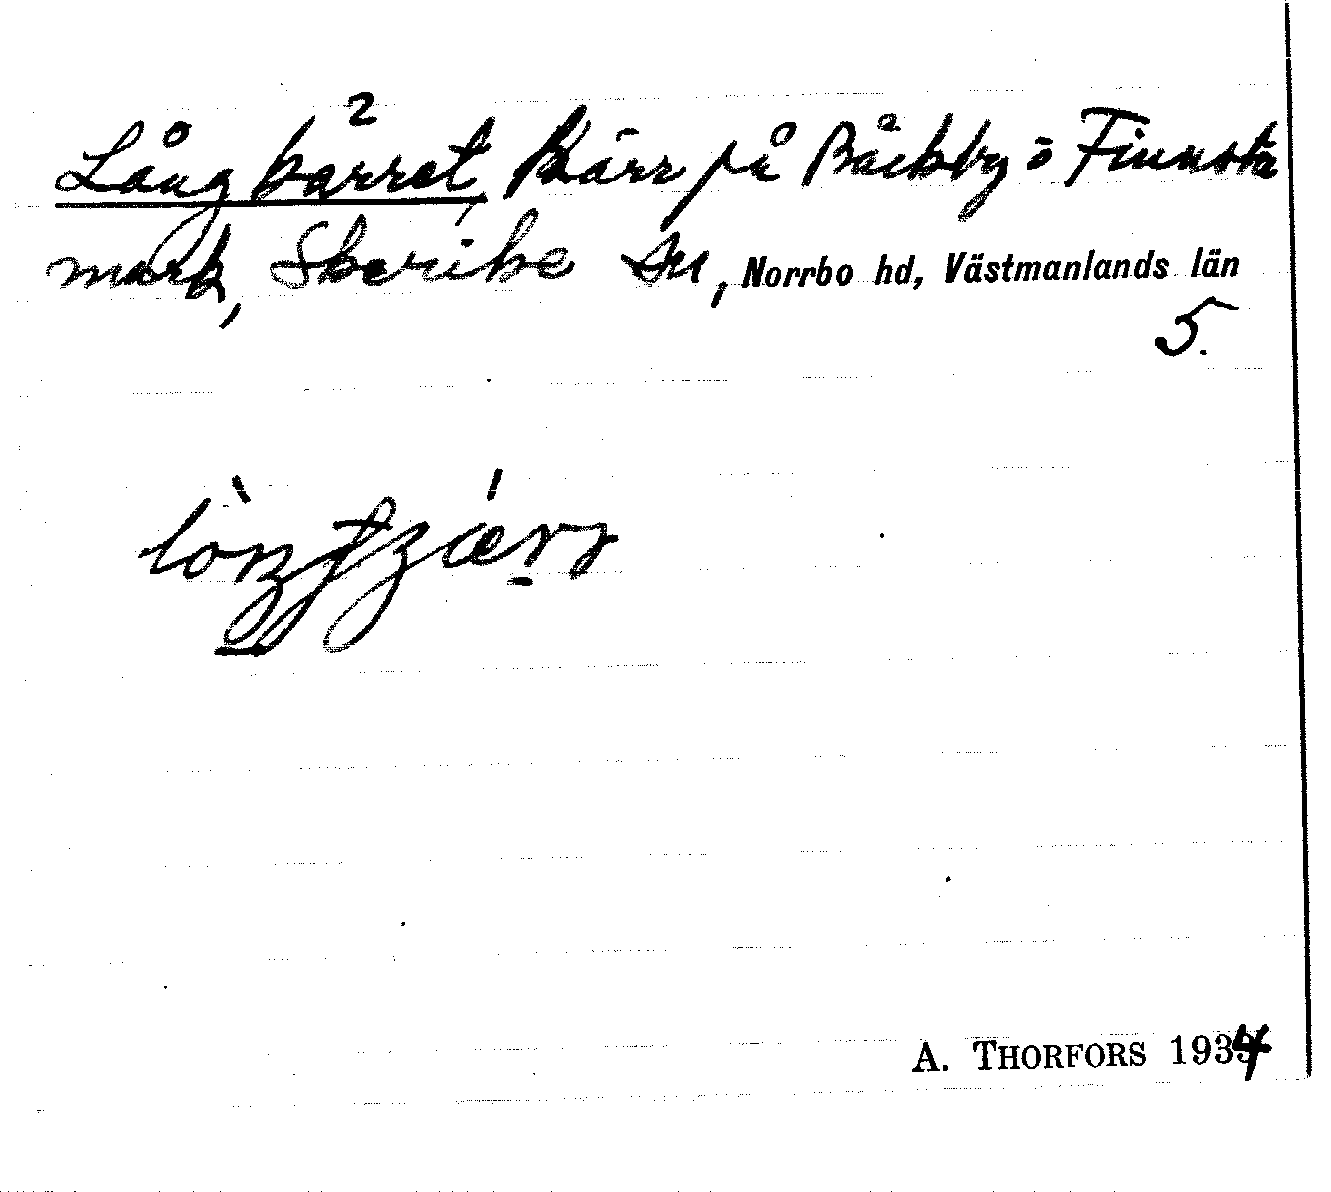 Långkärret, Kärr på Bäckby ö Finnsta
mark, Skerike sn, Norrbo hd, Västmanlands län
5.
A. THORFORS 1934